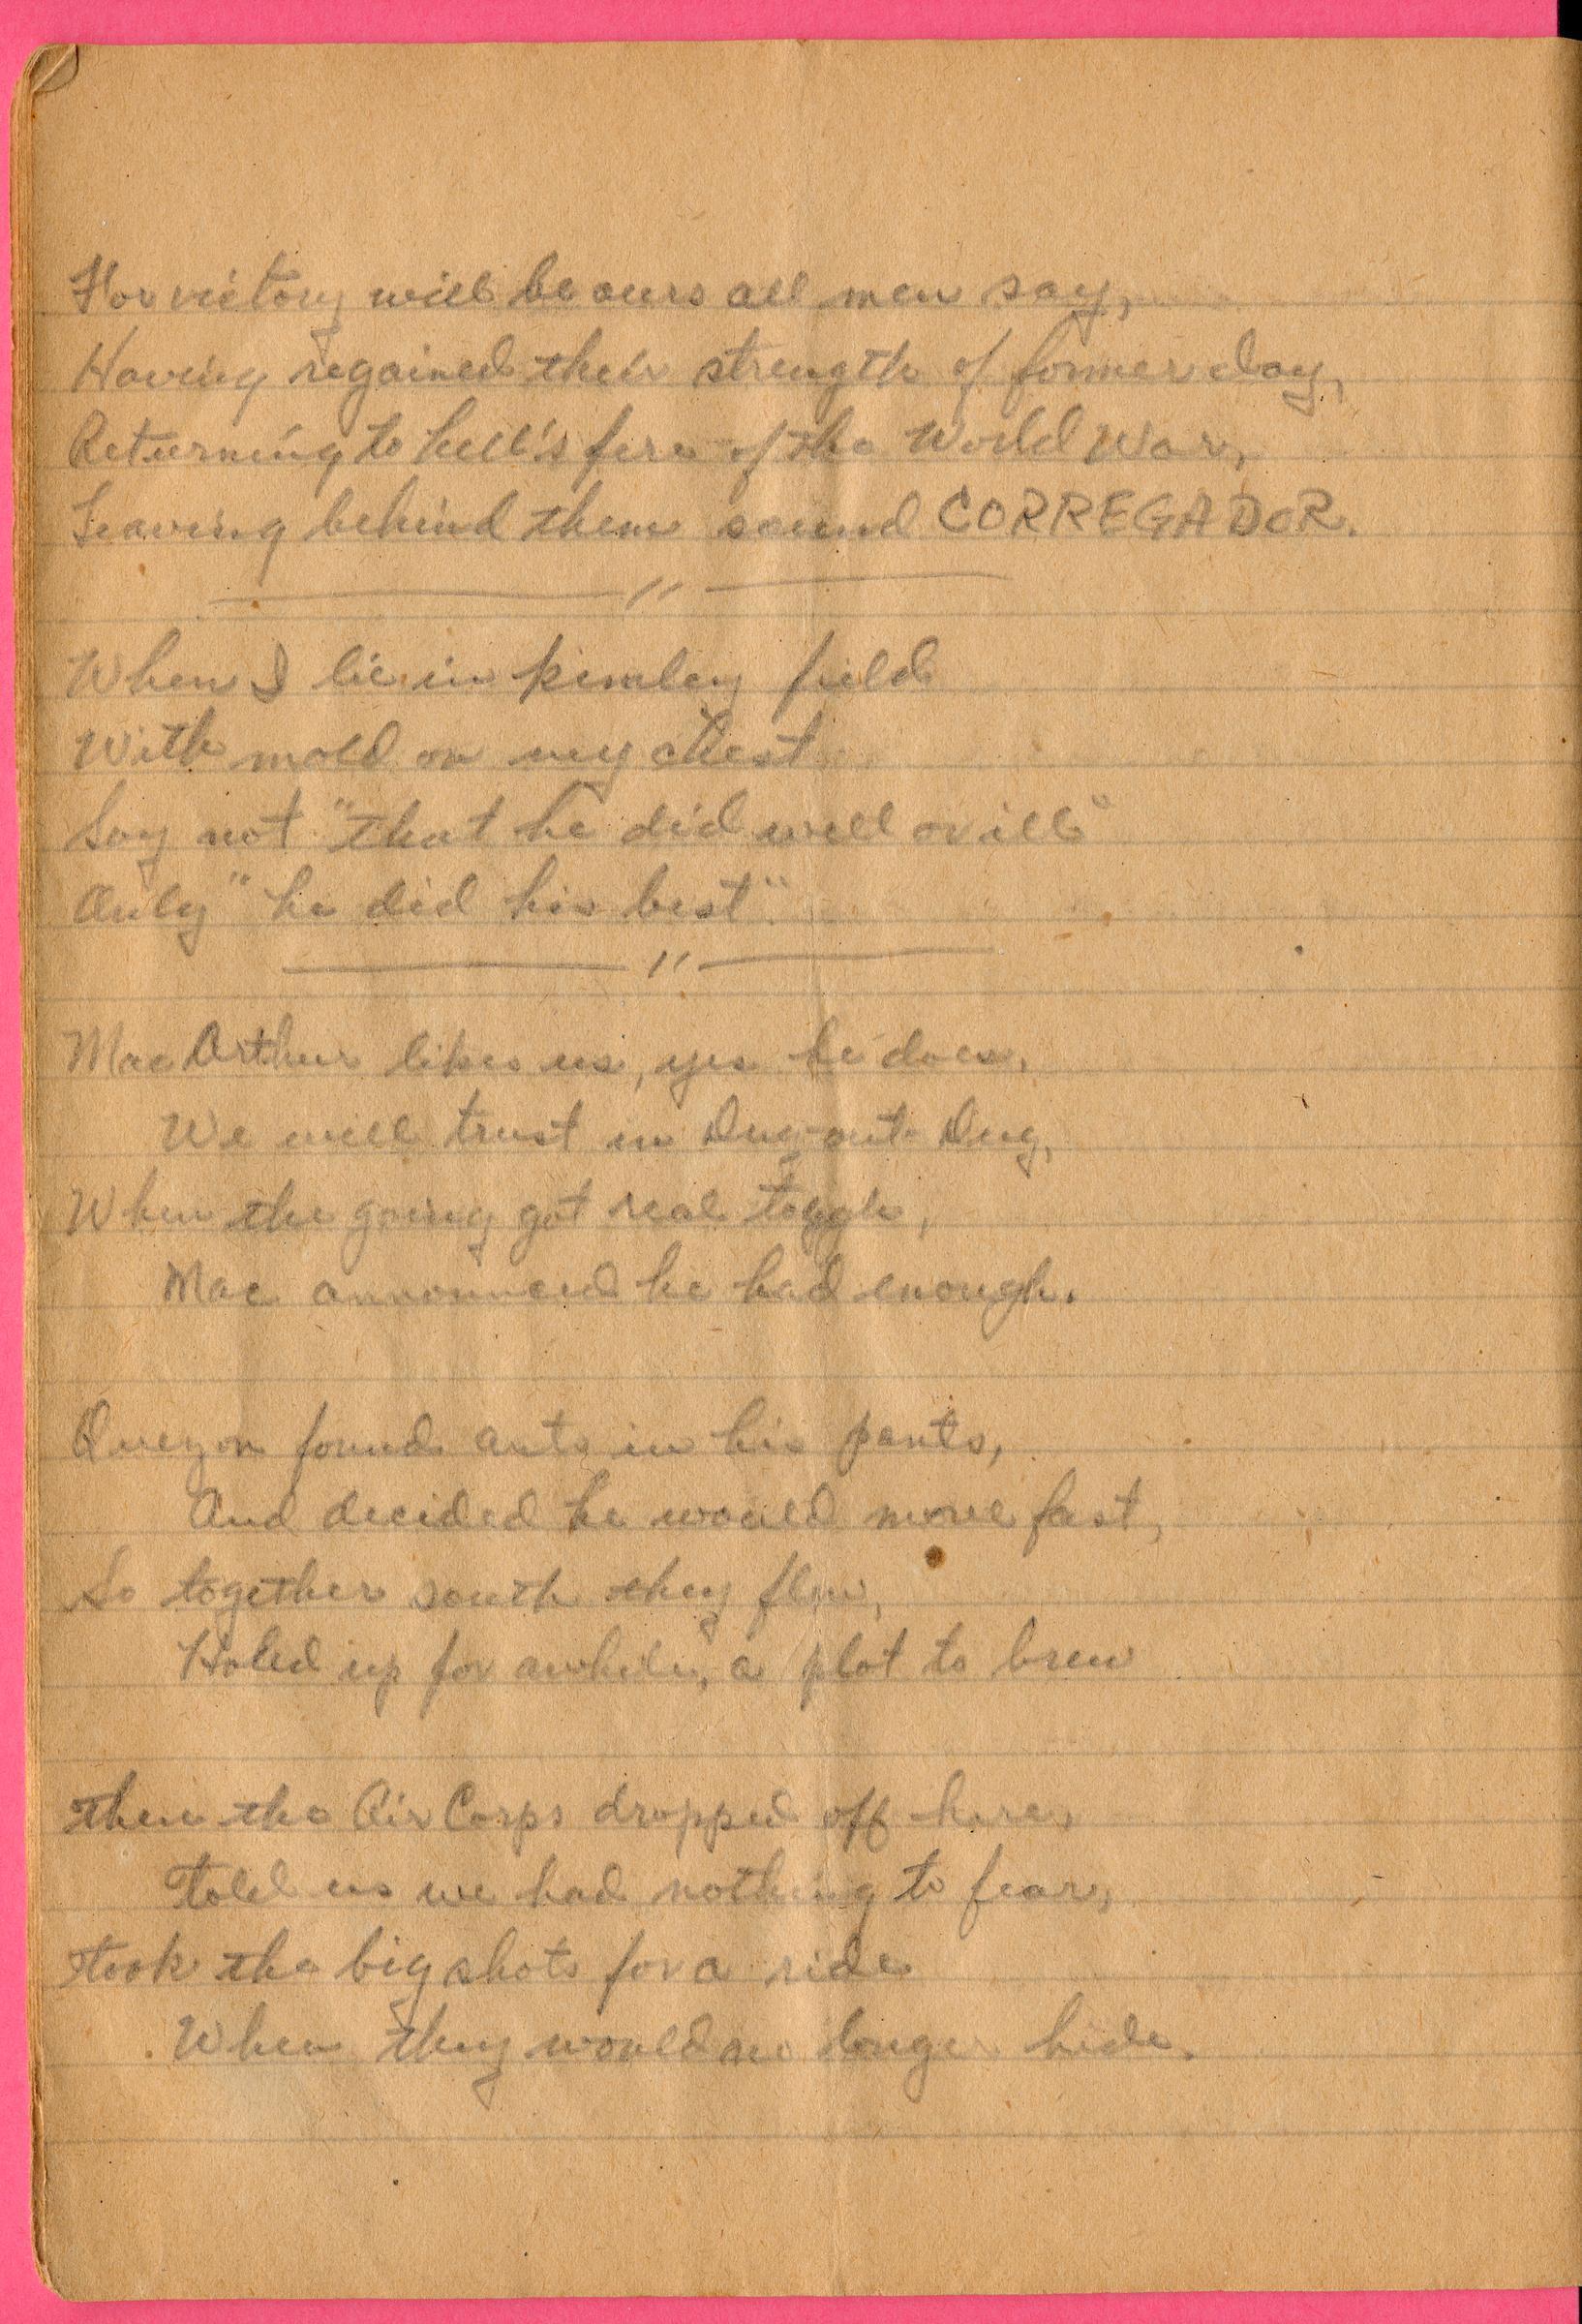 For victory will be ours all men say,
Having regained their strength of former day,
Returning to hell's fire of the World War,
Leaving behind them sound CORREGADOR.
When I lie in kimley field
With mold on my chest
Say not "that he did well or ill"
Only "he did his best".
MacArthur likes us, yes he does,
We will trust in Dug-out Dug,
When the going got real tough,
Mac announced he had enough.
Quezon found ants in his pants,
And decided he would move fast,
So together south they flew,
Holed up for awhile, a plot to brew
Then the Air Corps dropped off here,
Told us we had nothing to fear,
Took the big shots for a ride
When they would no longer hide.